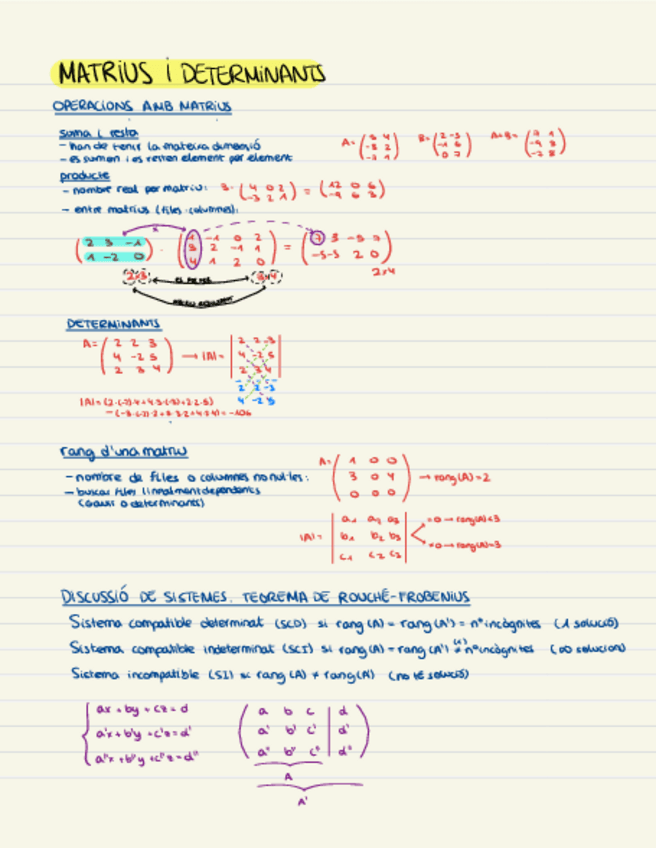 MATRIUS i DETERMINANTS
OPERACIONS AMB MATRIUS
suma i resta
- han de tenir la mateixa dimensió
- es sumen i es resten element per element
A= B= A+B=
producte
- nombre real per matriu: 3· (4 0 2 / -3 2 1) = (12 0 6 / -9 6 3)
- entre matrius (files · columnes):
2 3 -1
1 -2 0
1 -1 0 2
3 2 -1 1
4 1 2 0
=
7 3 -5 7
-5 -5 2 0
2x4
2x3 3x4
DETERMINANTS
A= → |A|=
2 2 3
4 -2 5
2 3 4
rang d'una matriu
- nombre de files o columnes no nul·les:
- buscar files linealment dependents
(Gauss o determinants)
A=
1 0 0
3 0 4
0 0 0
→ rang(A)=2
|A|=
a₁ a₂ a₃
b₁ b₂ b₃
c₁ c₂ c₃
=0 → rang(A)<3
→ rang(A)=3
DISCUSSIÓ DE SISTEMES. TEOREMA DE ROUCHÉ-FROBENIUS
Sistema compatible determinat (SCD) si rang(A) = rang(A') = nº incògnites (1 solució)
Sistema compatible indeterminat (SCI) si rang(A) = rang(A') nº incògnites (∞ solucions)
Sistema incompatible (SI) si rang(A) ≠ rang(A') (no té solució)
ax + by + cz = d
a'x + b'y + c'z = d'
a''x + b''y + c''z = d''
a b c | d
a' b' c' | d'
a'' b'' c'' | d''
A
A'